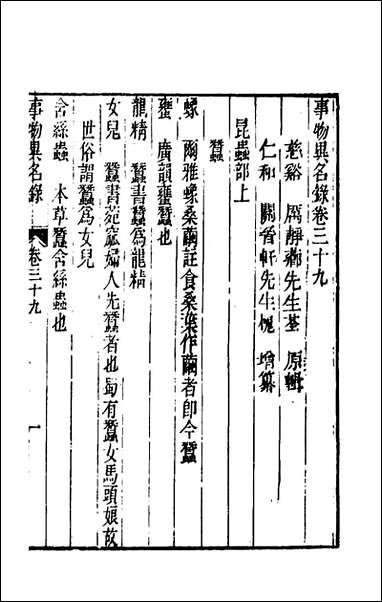 事物異名錄卷三十九
慈谿　厲靜薌先生荃　原輯
仁和　關晉軒先生槐　增纂
昆蟲部上
蠶
蟓　爾雅蟓桑繭註食桑葉作繭者即今蠶
䗸　廣韻䗸蠶也
龍精　蠶書蠶爲龍精
女兒　蠶書苑窳婦人先蠶者也蜀有蠶女馬頭娘故
世俗謂蠶爲女兒
含絲蟲　本草蠶含絲蟲也
事物異名錄　卷三十九　一